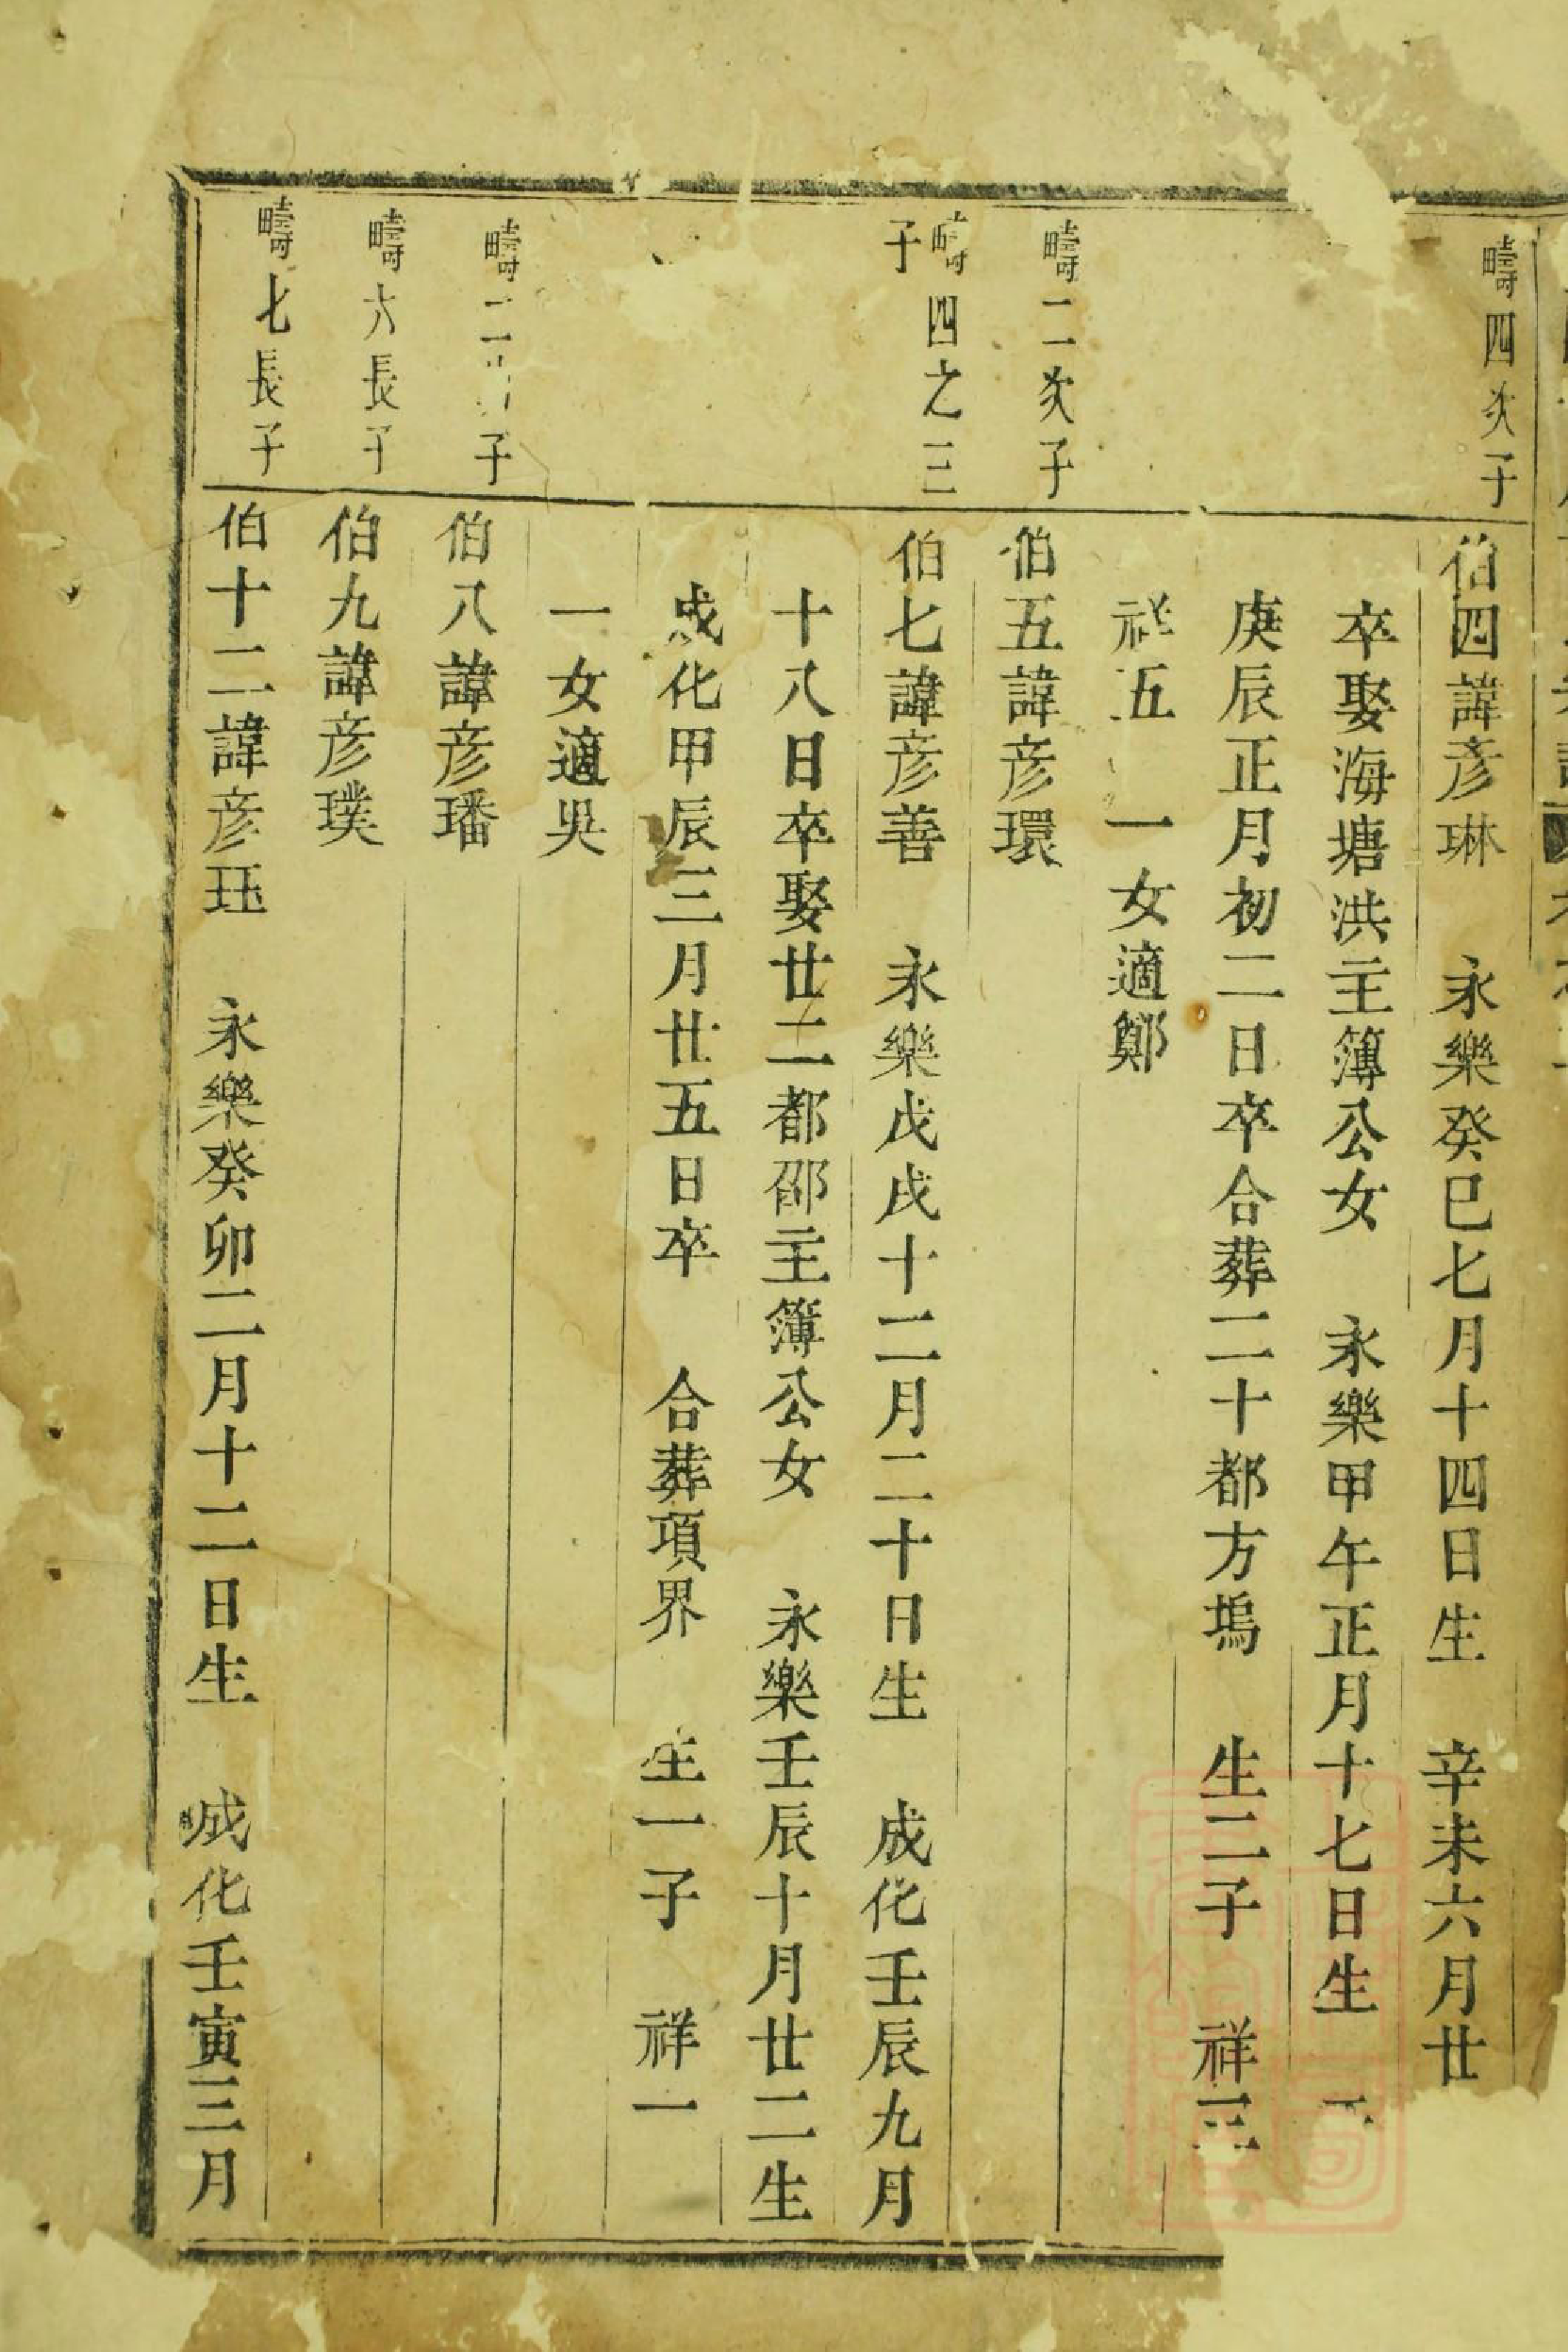 疇四次子
伯四諱彥琳　永樂癸巳七月十四日生　辛未六月廿
卒娶海塘洪主簿公女　永樂甲午正月十七日生
庚辰正月初二日卒合葬二十都方塢　生二子　祥三
祥五　一女適鄭
疇二次子
伯五諱彥環
疇四之三子
伯七諱彥善　永樂戊戌十二月二十日生　成化壬辰九月
十八日卒娶廿二都邵主簿公女　永樂壬辰十月廿二生
成化甲辰三月廿五日卒　合葬項界　生一子　祥一
一女適吳
疇二子
伯八諱彥璠
疇六長子
伯九諱彥璞
疇七長子
伯十二諱彥珏　永樂癸卯二月十二日生　成化壬寅三月